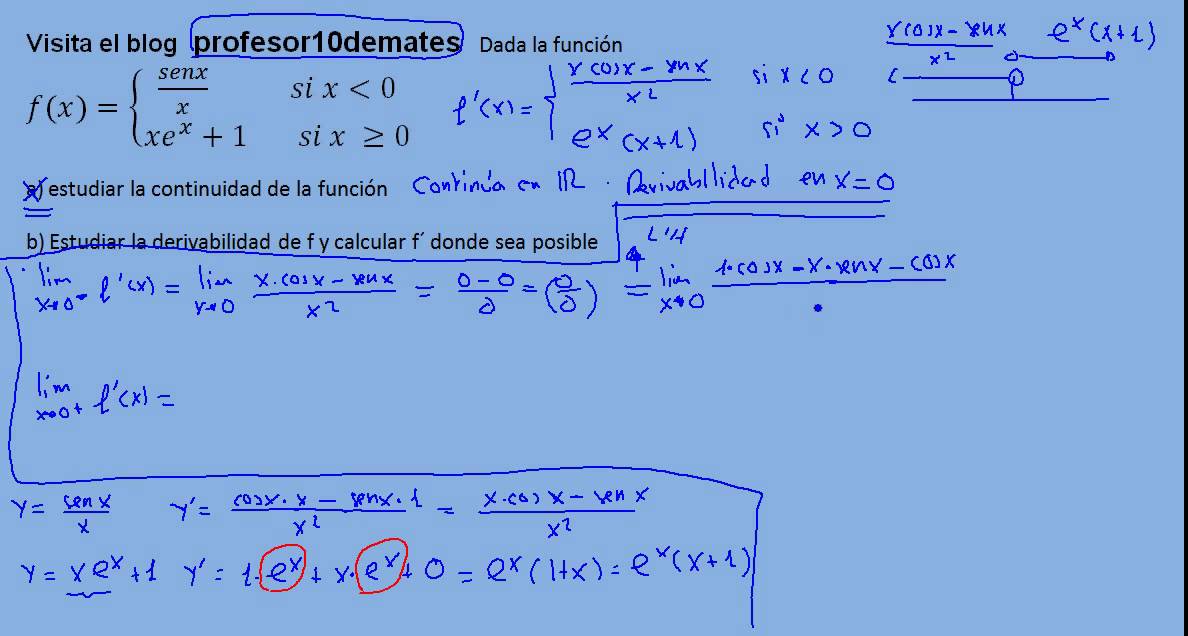 Visita el blog profesor10demates Dada la función
f(x) = { senx/x si x < 0
xeˣ + 1 si x ≥ 0
f'(x) = { x cosx - senx / x² si x < 0
eˣ (x+1) si x > 0
x cosx - senx / x² eˣ (x+1)
a) estudiar la continuidad de la función Continúa en IR . Derivabilidad en x = 0
b) Estudiar la derivabilidad de f y calcular f´ donde sea posible
L'H
lim x→0⁻ f'(x) = lim x→0 x·cosx - senx / x² = 0-0 / 0 = (0/0) = lim x→0 1·cosx - x·senx - cosx
lim x→0⁺ f'(x) =
y = senx / x y' = cosx·x - senx·1 / x² = x·cosx - senx / x²
y = xeˣ + 1 y' = 1·eˣ + x·eˣ + 0 = eˣ (1+x) = eˣ (x+1)